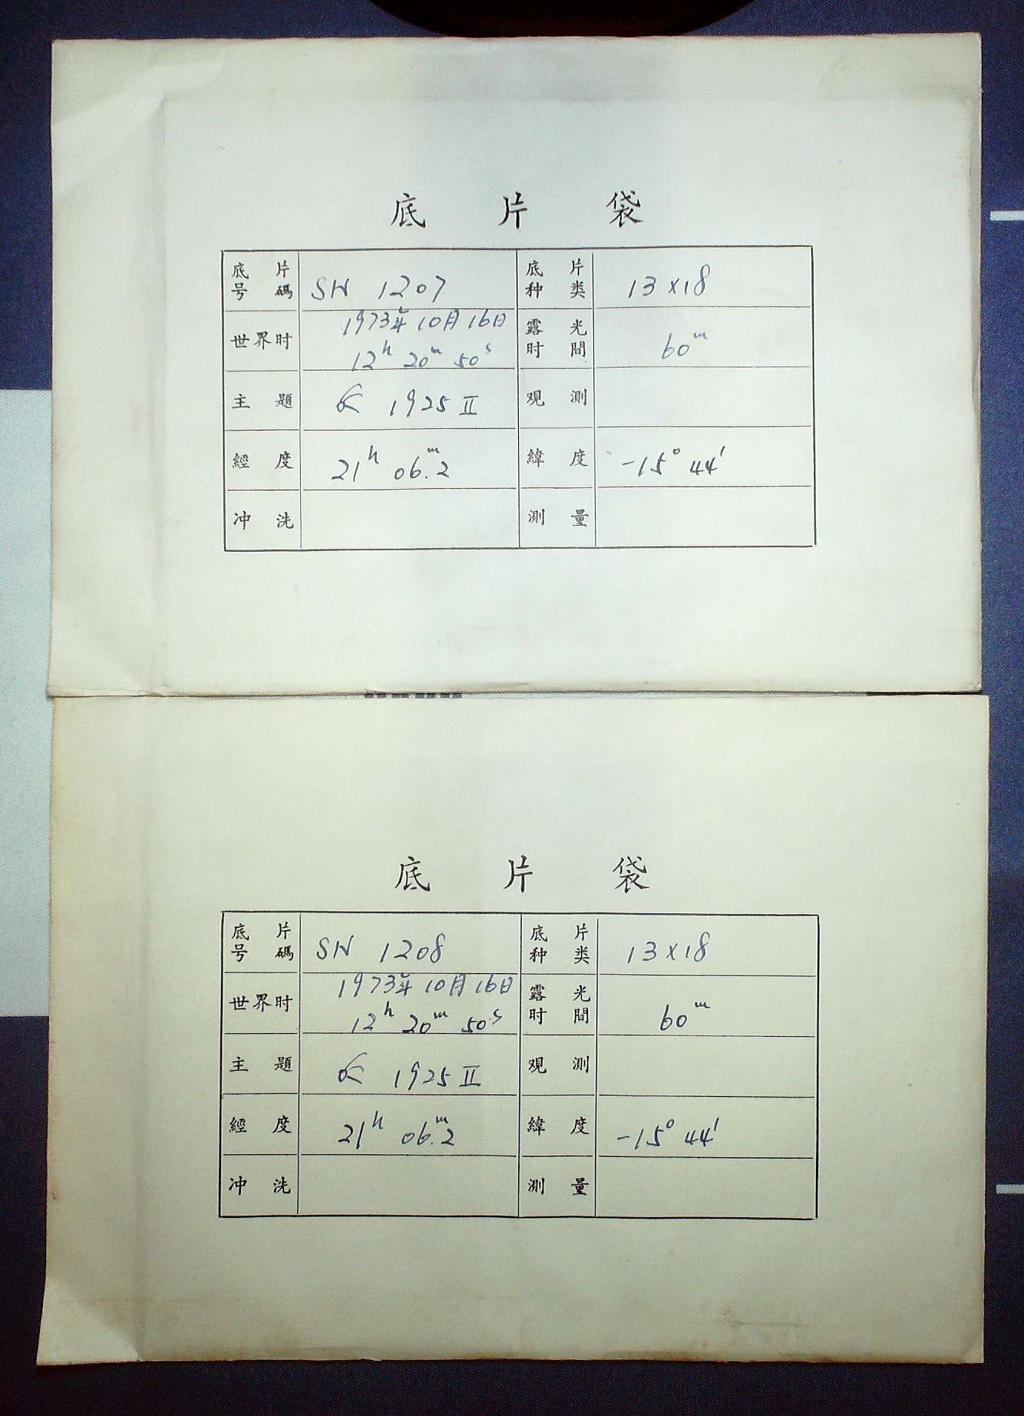 底 片 袋
底片号碼 SN 1207 底片种类 13×18
世界时 1973年10月16日 12h 20m 50s 露光时間 60m
主題 1925 II 观測
經度 21h 06m.2 緯度 -15° 44'
冲洗 測量
底 片 袋
底片号碼 SN 1208 底片种类 13×18
世界时 1973年10月16日 12h 20m 50s 露光时間 60m
主題 1925 II 观測
經度 21h 06m.2 緯度 -15° 44'
冲洗 測量